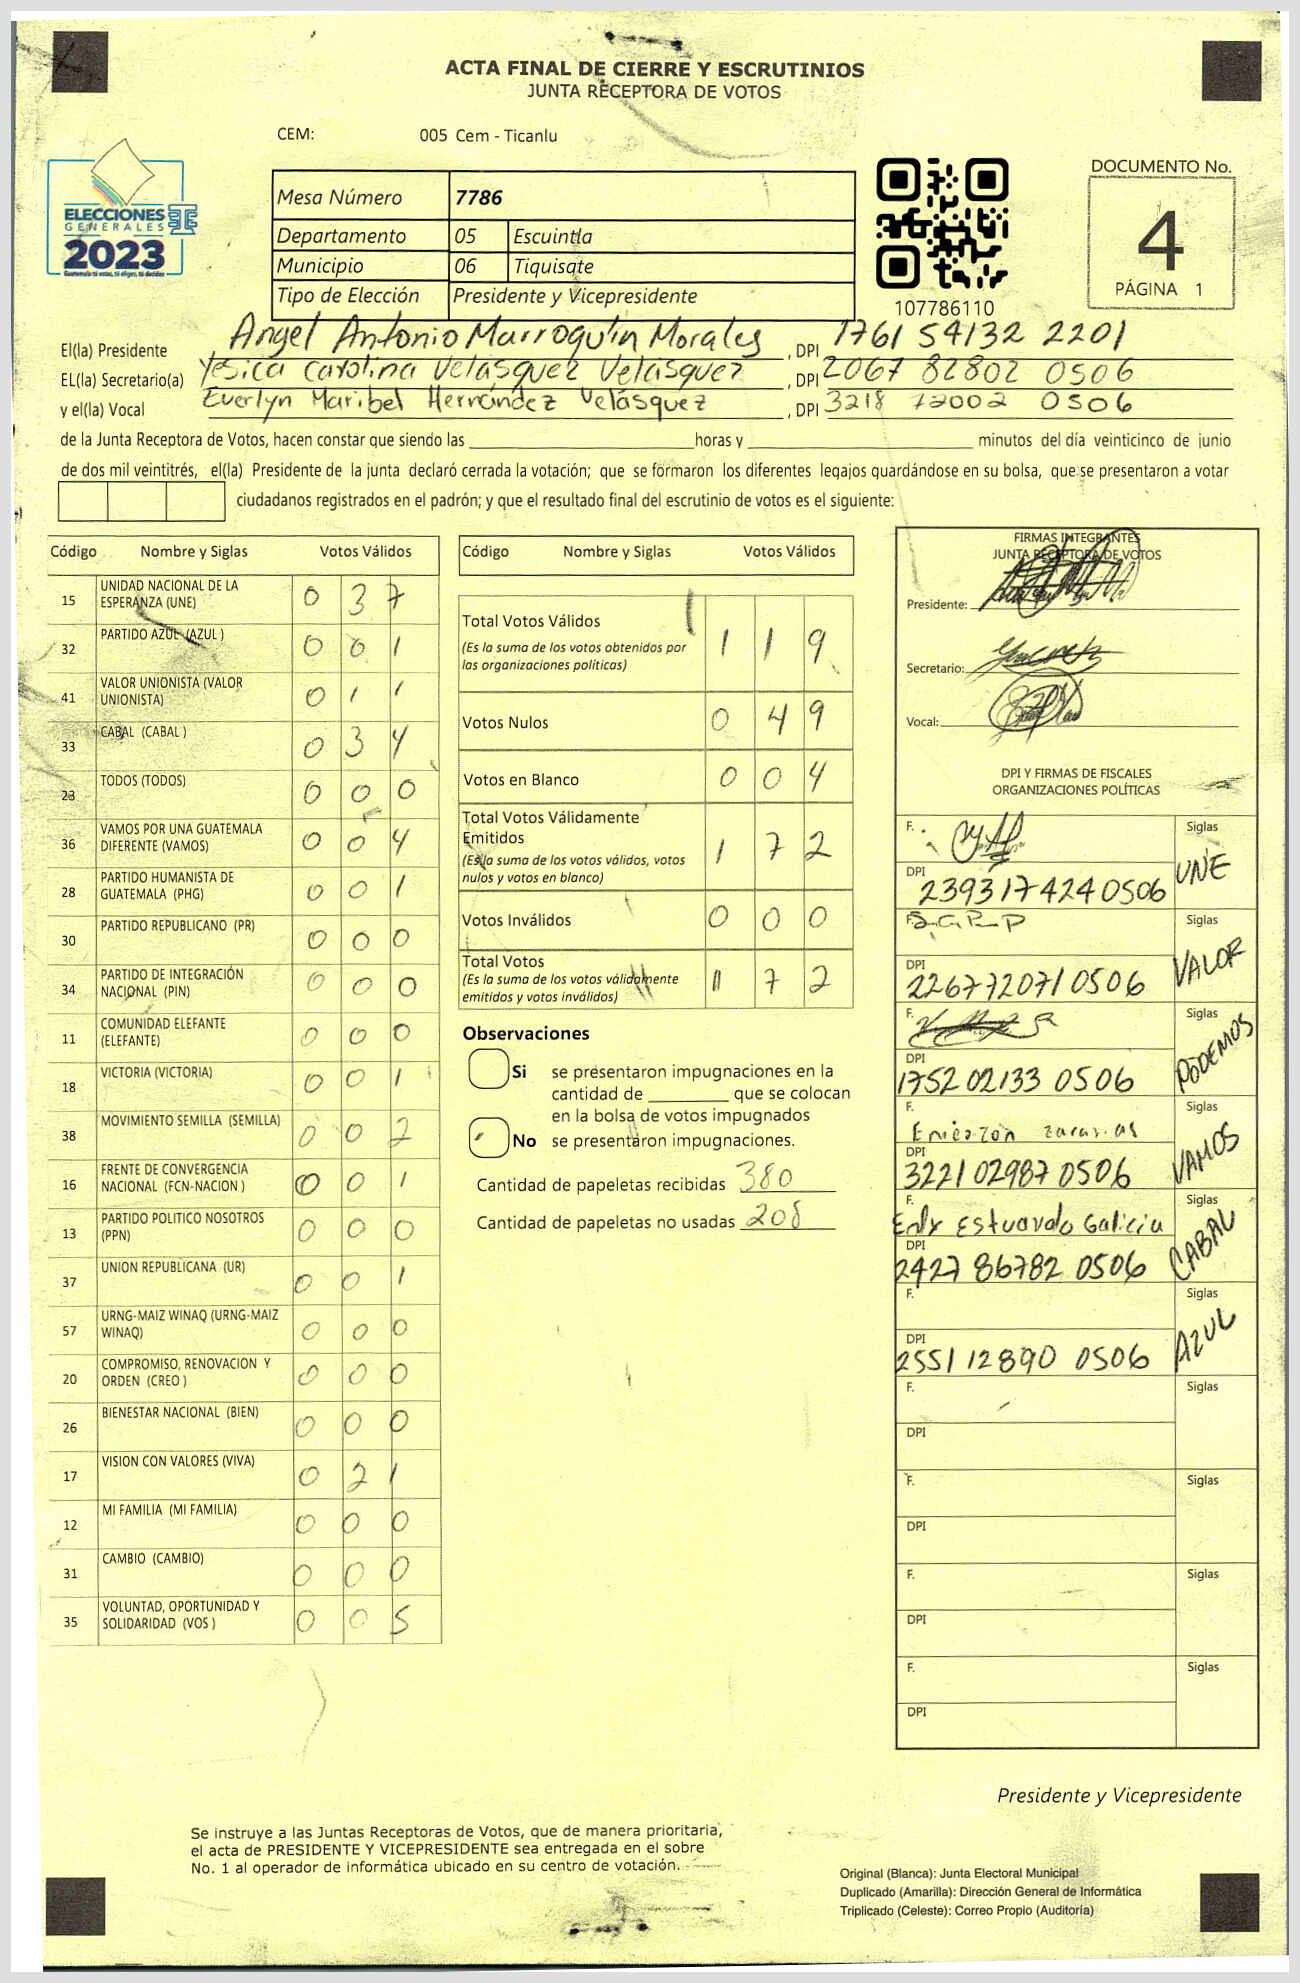 ACTA FINAL DE CIERRE Y ESCRUTINIOS
JUNTA RECEPTORA DE VOTOS
CEM: 005 Cem - Ticanlu
ELECCIONES
GENERALES
2023
Guatemala tú votas, tú eliges, tú decides
Mesa Número 7786
Departamento 05 Escuintla
Municipio 06 Tiquisate
Tipo de Elección Presidente y Vicepresidente
107786110
DOCUMENTO No.
4
PÁGINA 1
El(la) Presidente Angel Antonio Marroquín Morales, DPI 1761 54132 2201
EL(la) Secretario(a) Yesica Carolina Velásquez Velásquez, DPI 2067 82802 0506
y el(la) Vocal Everlyn Maribel Hernández Velásquez, DPI 3218 72002 0506
de la Junta Receptora de Votos, hacen constar que siendo las horas y minutos del día veinticinco de junio
de dos mil veintitrés, el(la) Presidente de la junta declaró cerrada la votación; que se formaron los diferentes legajos guardándose en su bolsa, que se presentaron a votar
ciudadanos registrados en el padrón; y que el resultado final del escrutinio de votos es el siguiente:
Código Nombre y Siglas Votos Válidos
15 UNIDAD NACIONAL DE LA ESPERANZA (UNE) 0 3 7
32 PARTIDO AZUL (AZUL ) 0 0 1
41 VALOR UNIONISTA (VALOR UNIONISTA) 0 1 1
33 CABAL (CABAL ) 0 3 4
23 TODOS (TODOS) 0 0 0
36 VAMOS POR UNA GUATEMALA DIFERENTE (VAMOS) 0 0 4
28 PARTIDO HUMANISTA DE GUATEMALA (PHG) 0 0 1
30 PARTIDO REPUBLICANO (PR) 0 0 0
34 PARTIDO DE INTEGRACIÓN NACIONAL (PIN) 0 0 0
11 COMUNIDAD ELEFANTE (ELEFANTE) 0 0 0
18 VICTORIA (VICTORIA) 0 0 1
38 MOVIMIENTO SEMILLA (SEMILLA) 0 0 2
16 FRENTE DE CONVERGENCIA NACIONAL (FCN-NACION ) 0 0 1
13 PARTIDO POLITICO NOSOTROS (PPN) 0 0 0
37 UNION REPUBLICANA (UR) 0 0 1
57 URNG-MAIZ WINAQ (URNG-MAIZ WINAQ) 0 0 0
20 COMPROMISO, RENOVACION Y ORDEN (CREO ) 0 0 0
26 BIENESTAR NACIONAL (BIEN) 0 0 0
17 VISION CON VALORES (VIVA) 0 2 1
12 MI FAMILIA (MI FAMILIA) 0 0 0
31 CAMBIO (CAMBIO) 0 0 0
35 VOLUNTAD, OPORTUNIDAD Y SOLIDARIDAD (VOS ) 0 0 5
Código Nombre y Siglas Votos Válidos
Total Votos Válidos 1 1 9
(Es la suma de los votos obtenidos por
las organizaciones políticas)
Votos Nulos 0 4 9
Votos en Blanco 0 0 4
Total Votos Válidamente
Emitidos 1 7 2
(Es la suma de los votos válidos, votos
nulos y votos en blanco)
Votos Inválidos 0 0 0
Total Votos 1 7 2
(Es la suma de los votos válidamente
emitidos y votos inválidos)
Observaciones
Si se presentaron impugnaciones en la
cantidad de que se colocan
en la bolsa de votos impugnados
No se presentaron impugnaciones.
Cantidad de papeletas recibidas 380
Cantidad de papeletas no usadas 208
FIRMAS INTEGRANTES
JUNTA RECEPTORA DE VOTOS
Presidente:
Secretario:
Vocal:
DPI Y FIRMAS DE FISCALES
ORGANIZACIONES POLÍTICAS
F. Siglas UNE
DPI 2393 17424 0506
F. Siglas VALOR
DPI 2267 72071 0506
F. Siglas PODEMOS
DPI 1752 02133 0506
F. Siglas VAMOS
DPI 3221 02987 0506
F. Enly Estuardo Galicia Siglas CABAL
DPI 2427 86782 0506
F. Siglas AZUL
DPI 2551 12890 0506
F. Siglas
DPI
F. Siglas
DPI
F. Siglas
DPI
F. Siglas
DPI
Presidente y Vicepresidente
Se instruye a las Juntas Receptoras de Votos, que de manera prioritaria,
el acta de PRESIDENTE Y VICEPRESIDENTE sea entregada en el sobre
No. 1 al operador de informática ubicado en su centro de votación.
Original (Blanca): Junta Electoral Municipal
Duplicado (Amarilla): Dirección General de Informática
Triplicado (Celeste): Correo Propio (Auditoría)